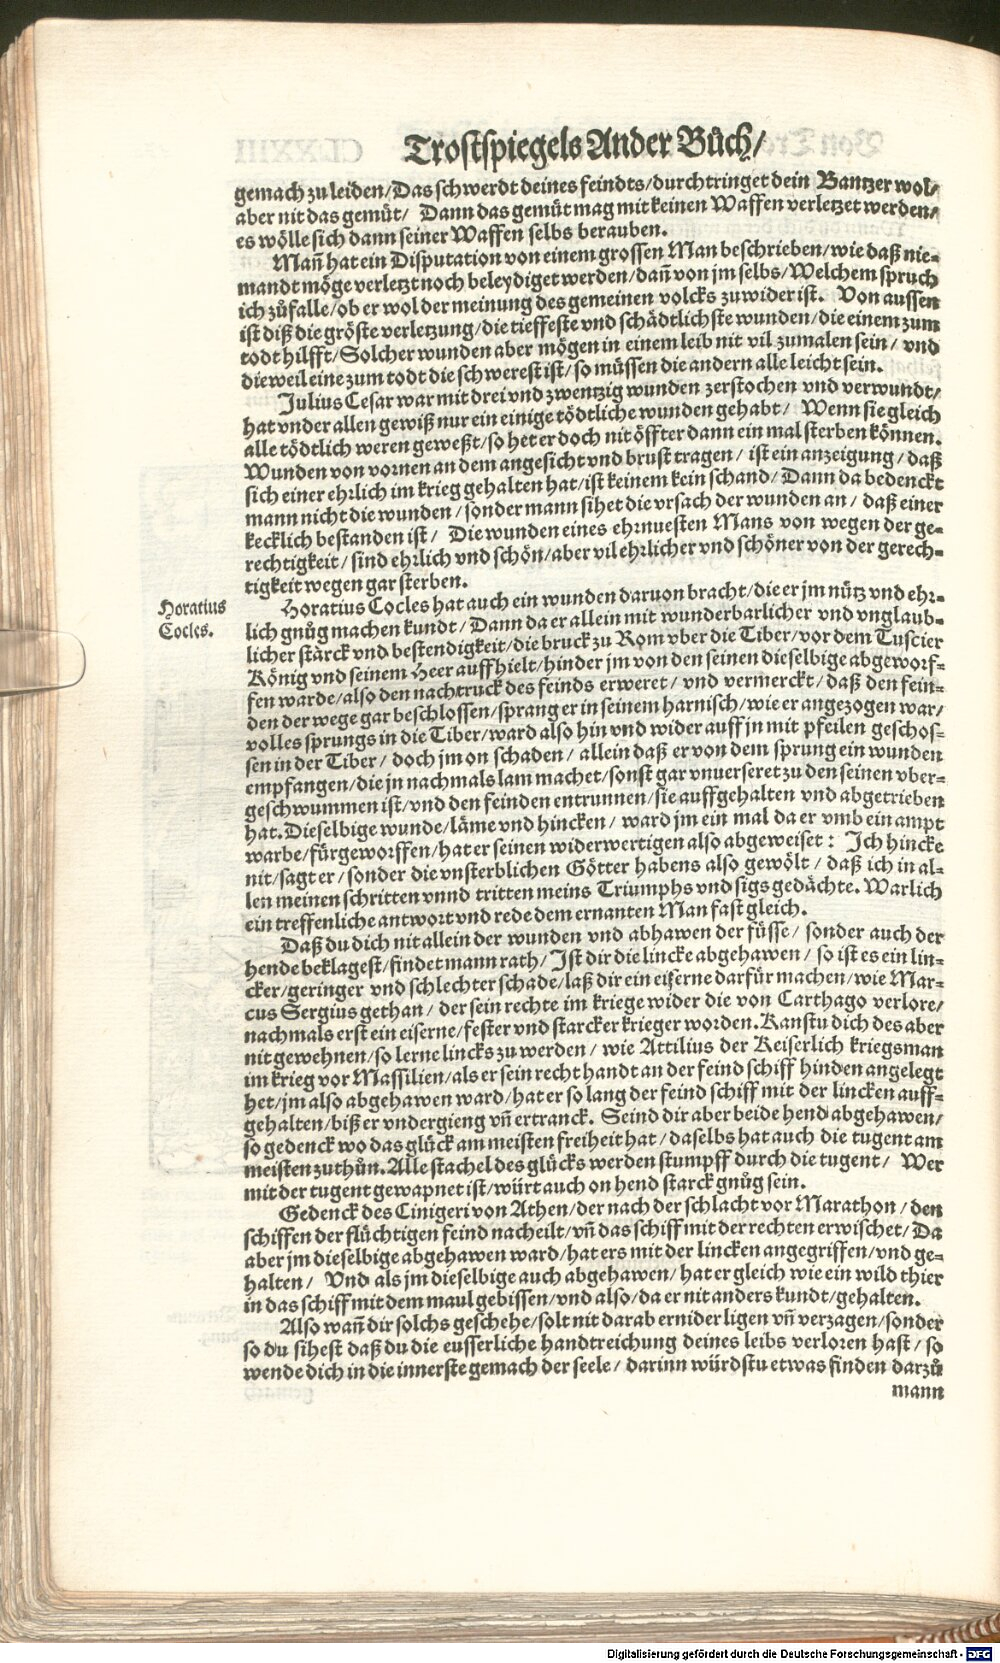 Trostspiegels Ander Bůch/
gemach zu leiden/Das schwerdt deines feindts/durchtringet dein Bantzer wol/
aber nit das gemüt/ Dann das gemüt mag mit keinen Waffen verletzet werden/
es wölle sich dann seiner Waffen selbs berauben.
Man̄ hat ein Disputation von einem grossen Man beschrieben/wie daß nie-
mandt möge verletzt noch beleydiget werden/dan̄ von jm selbs/Welchem spruch
ich zůfalle/ob er wol der meinung des gemeinen volcks zuwider ist. Von aussen
ist diß die gröste verletzung/die tieffeste vnd schädtlichste wunden/die einem zum
todt hilfft/Solcher wunden aber mögen in einem leib nit vil zumalen sein/ vnd
dieweil eine zum todt die schwerest ist/so müssen die andern alle leicht sein.
Julius Cesar war mit drei vnd zwentzig wunden zerstochen vnd verwundt/
hat vnder allen gewiß nur ein einige tödtliche wunden gehabt/ Wenn sie gleich
alle tödtlich weren geweßt/so het er doch nit öffter dann ein mal sterben können.
Wunden von vornen an dem angesicht vnd brust tragen/ ist ein anzeigung/ daß
sich einer ehrlich im krieg gehalten hat/ist keinem kein schand/ Dann da bedenckt
mann nicht die wunden/sonder mann sihet die vrsach der wunden an/ daß einer
kecklich bestanden ist/ Die wunden eines ehrnuesten Mans von wegen der ge-
rechtigkeit/sind ehrlich vnd schön/aber vil ehrlicher vnd schöner von der gerech-
tigkeit wegen gar sterben.
Horatius
Cocles.
Horatius Cocles hat auch ein wunden daruon bracht/die er jm nütz vnd ehr-
lich gnůg machen kundt/Dann da er allein mit wunderbarlicher vnd vnglaub-
licher stärck vnd bestendigkeit/die bruck zu Rom vber die Tiber/vor dem Tuscier
König vnd seinem Heer auffhielt/hinder jm von den seinen dieselbige abgeworf-
fen warde/also den nachtruck des feinds erweret/ vnd vermerckt/ daß den fein-
den der wege gar beschlossen/sprang er in seinem harnisch/wie er angezogen war/
volles sprungs in die Tiber/ward also hin vnd wider auff jn mit pfeilen geschos-
sen in der Tiber/ doch jm on schaden/ allein daß er von dem sprung ein wunden
empfangen/die jn nachmals lam machet/sonst gar vnuerseret zu den seinen vber-
geschwummen ist/vnd den feinden entrunnen/sie auffgehalten vnd abgetrieben
hat. Dieselbige wunde/läme vnd hincken/ ward jm ein mal da er vmb ein ampt
warbe/fürgeworffen/hat er seinen widerwertigen also abgeweiset: Ich hincke
nit/sagt er/sonder die vnsterblichen Götter habens also gewölt/ daß ich in al-
len meinen schritten vnnd tritten meins Triumphs vnd sigs gedächte. Warlich
ein treffenliche antwort vnd rede dem ernanten Man fast gleich.
Daß du dich nit allein der wunden vnd abhawen der füsse/ sonder auch der
hende beklagest/findet mann rath/Ist dir die lincke abgehawen/ so ist es ein lin-
cker/geringer vnd schlechter schade/laß dir ein eiserne darfür machen/wie Mar-
cus Sergius gethan/ der sein rechte im kriege wider die von Carthago verlore/
nachmals erst ein eiserne/fester vnd starcker krieger worden. Kanstu dich des aber
nit gewehnen/so lerne lincks zu werden/ wie Attilius der Keiserlich kriegsman
im krieg vor Massilien/als er sein recht handt an der feind schiff hinden angelegt
het/jm also abgehawen ward/hat er so lang der feind schiff mit der lincken auff-
gehalten/biß er vndergieng vn̄ ertranck. Seind dir aber beide hend abgehawen/
so gedenck wo das glück am meisten freiheit hat/ daselbs hat auch die tugent am
meisten zuthůn. Alle stachel des glücks werden stumpff durch die tugent/ Wer
mit der tugent gewapnet ist/würt auch on hend starck gnůg sein.
Gedenck des Cinigeri von Athen/der nach der schlacht vor Marathon/ den
schiffen der flüchtigen feind nacheilt/vn̄ das schiff mit der rechten erwischet/Da
aber jm dieselbige abgehawen ward/hat ers mit der lincken angegriffen/vnd ge-
halten/ Vnd als jm dieselbige auch abgehawen/hat er gleich wie ein wild thier
in das schiff mit dem maul gebissen/vnd also/da er nit anders kundt/gehalten.
Also wan̄ dir solchs geschehe/solt nit darab ernider ligen vn̄ verzagen/sonder
so du sihest daß du die eusserliche handtreichung deines leibs verloren hast/ so
wende dich in die innerste gemach der seele/ darinn würdstu etwas finden darzů
mann
Digitalisierung gefördert durch die Deutsche Forschungsgemeinschaft - DFG